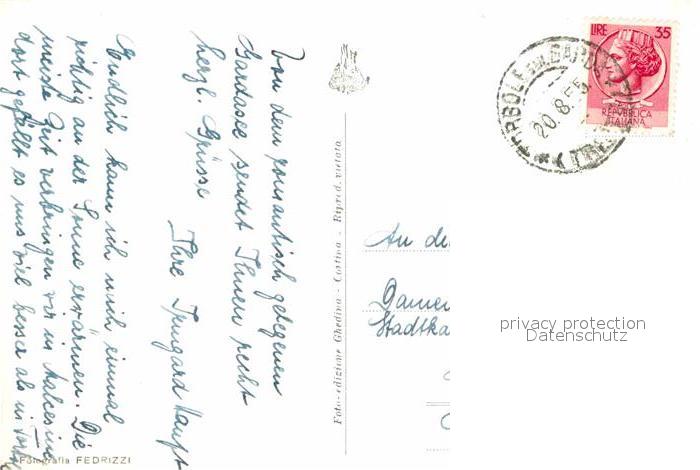 Von dem romantisch gelegenen
Gardasee sendet Ihnen recht
herzl. Grüsse
Ihre Irmgard Hauff
Endlich kann ich mich einmal
richtig an der Sonne erwärmen. Die
meiste Zeit verbringen wir in Malcesine
dort gefällt es uns viel besser als in Torbole
Foto-edizione Ghedina - Cortina - Riprod. vietata
LIRE 35
REPVBBLICA
ITALIANA
TORBOLE sul GARDA
20.8.55
An die
Damen
Stadtka
privacy protection
Datenschutz
Fotografia FEDRIZZI